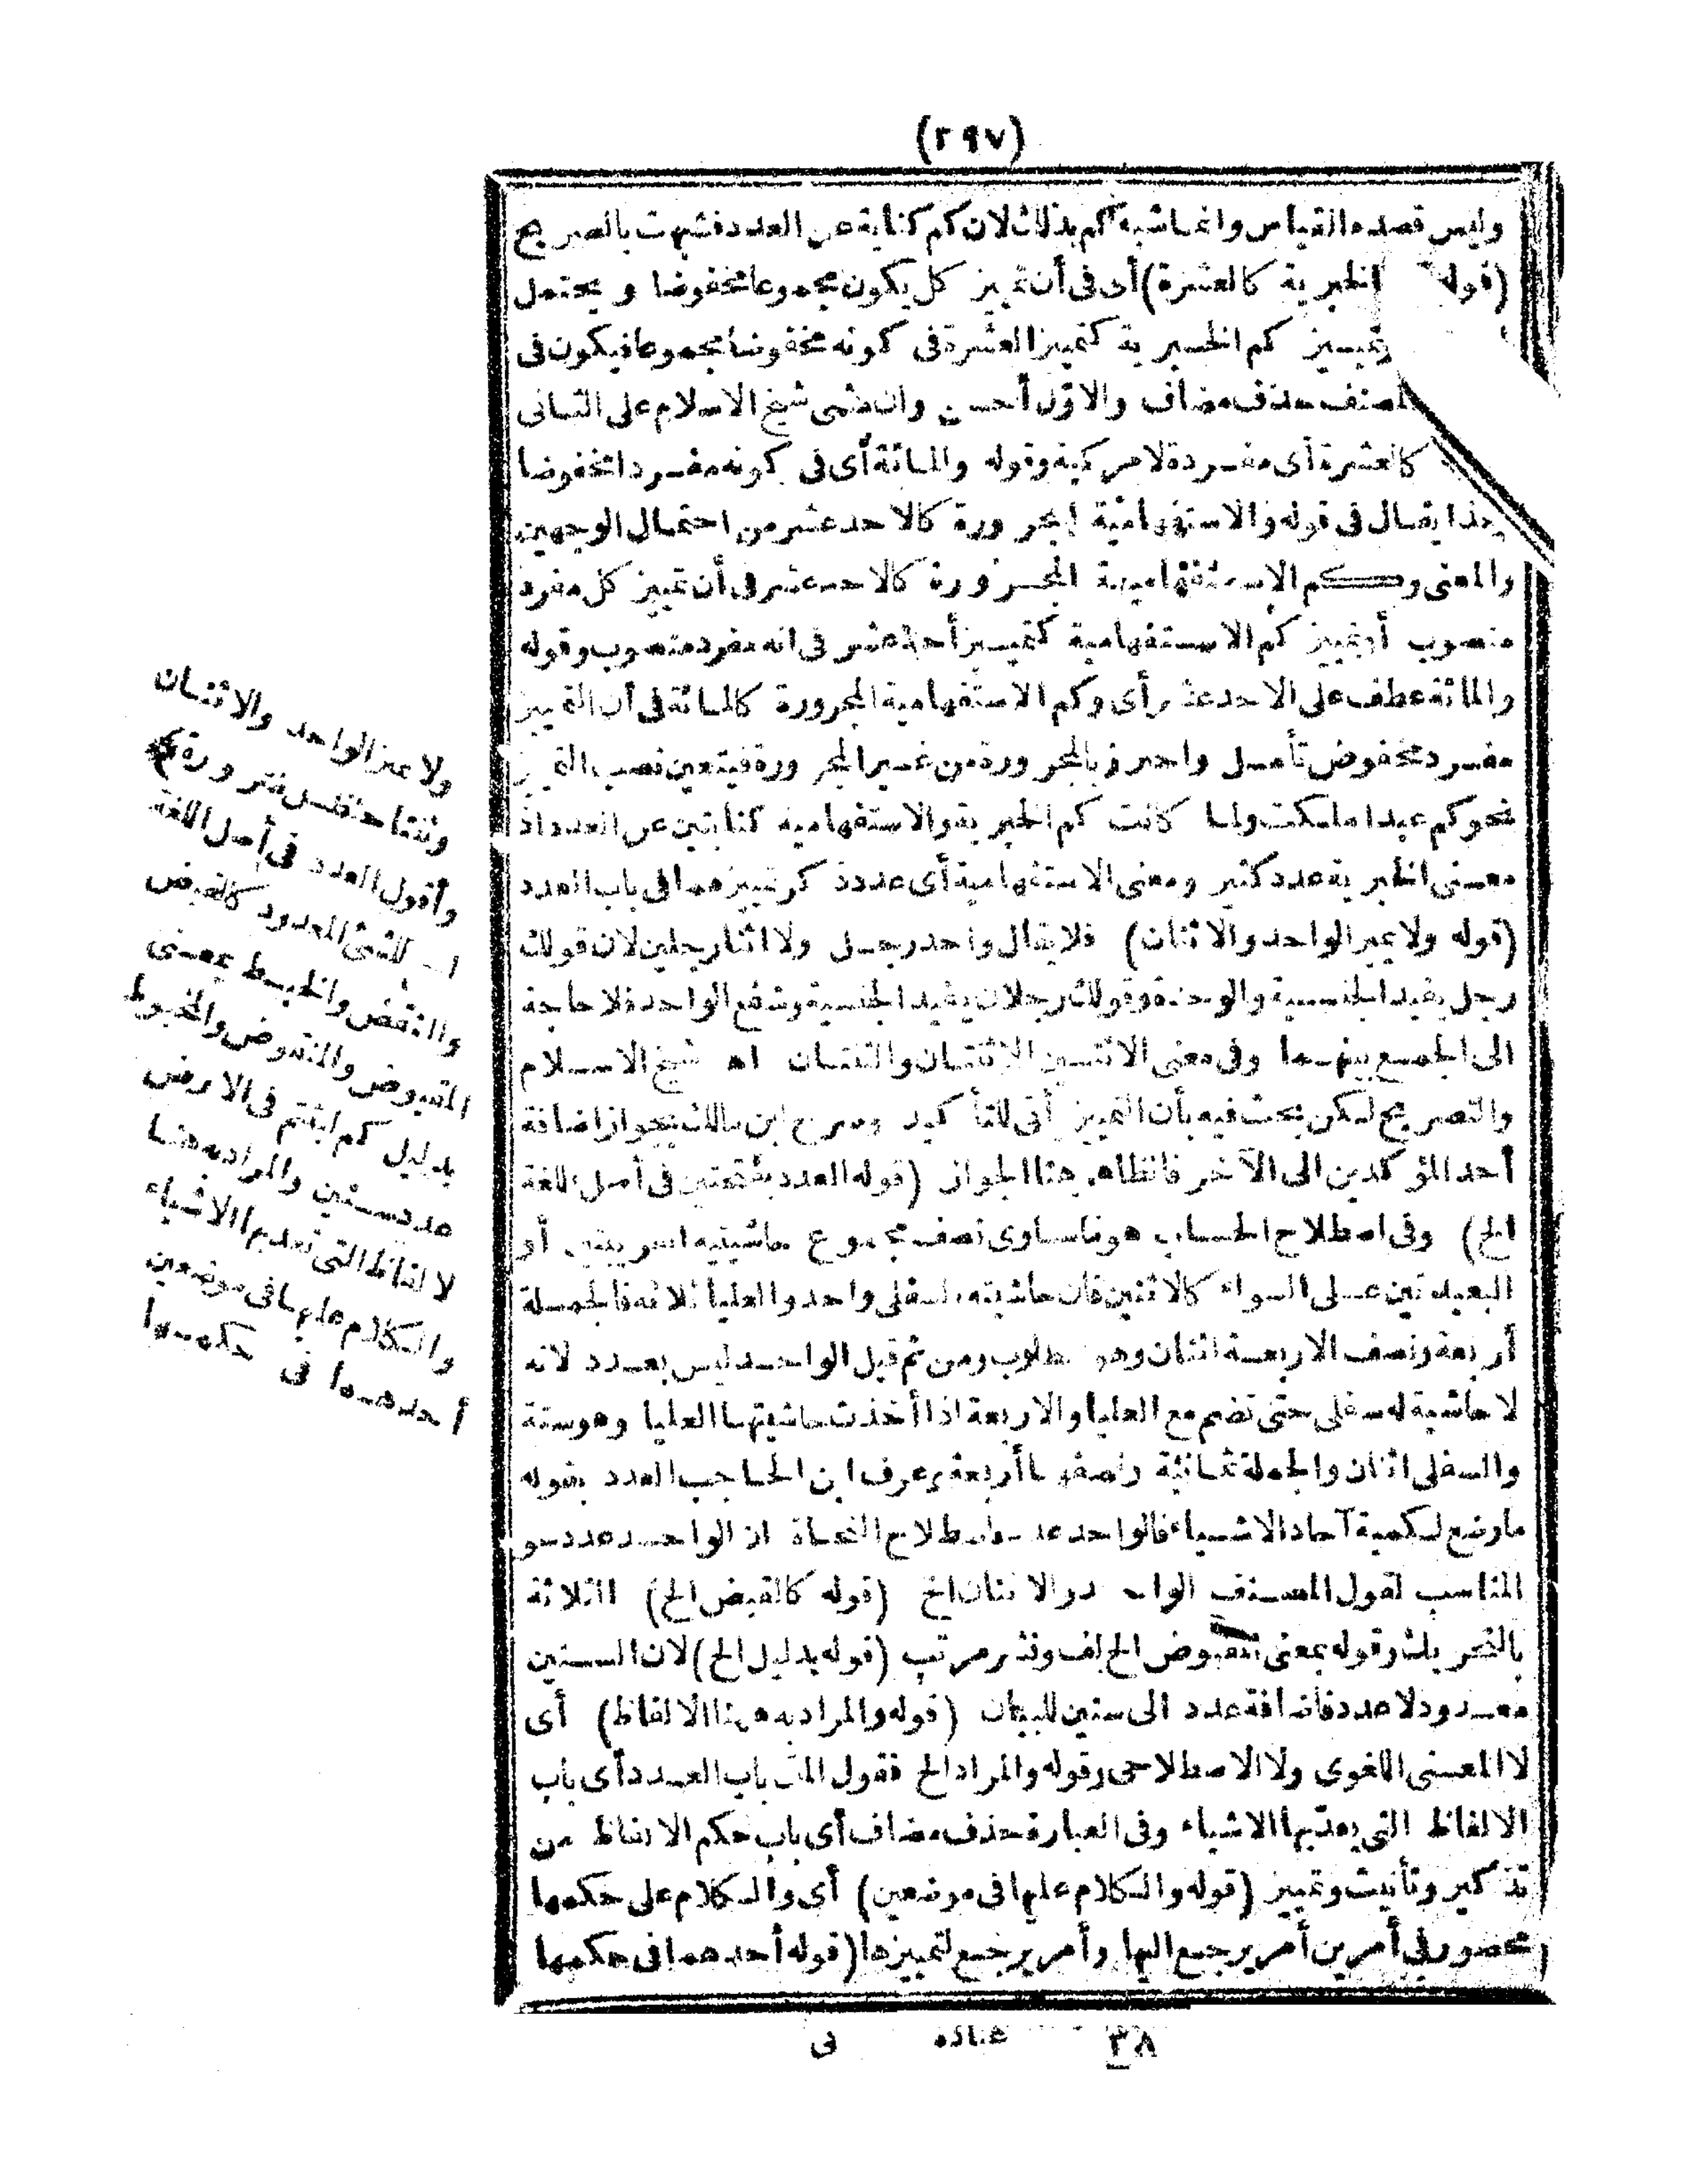 (٢٩٧)
وليس قصده القياس وانما شبه كم بذلك لان كم كناية عن العدد فشبهت بالصريح
(قوله الخبرية كالعشرة) أى فى أن تمييز كل يكون مجموعا مخفوضا و يحتمل
تمييز كم الخبرية كتمييز العشرة فى كونه مخفوضا مجموعا فيكون فى
حذف مضاف والاول أحسن وان مشى شيخ الاسلام على الثانى
كالعشرة أى مفردة لا مركبة وقوله والمائة أى فى كونه مفردا مخفوضا
يقال فى قوله والاستفهامية المجرورة كالاحد عشر من احتمال الوجهين
والمعنى وكم الاستفهامية المجرورة كالاحد عشر فى أن تمييز كل مفرد
منصوب أو تمييز كم الاستفهامية كتمييز أحد عشر فى انه مفرد منصوب وقوله
والمائة عطف على الاحد عشر أى وكم الاستفهامية المجرورة كالمائة فى أن التمييز
مفرد مخفوض تأمل واحترز بالمجرورة من غير المجرورة فيتعين نصب التمييز
نحو كم عبدا ملكت ولما كانت كم الخبرية والاستفهامية كنايتين عن العدد اذ
معنى الخبرية عدد كثير ومعنى الاستفهامية أى عدد ذكر تمييزهما فى باب العدد
(قوله ولا يميز الواحد والاثنان) فلا يقال واحد رجل ولا اثنا رجلين لان قولك
رجل يفيد الجنسية والوحدة وقولك رجلان يفيد الجنسية وشفع الواحد فلا حاجة
الى الجمع بينهما وفى معنى الاثنين الاثنتان والثنتان اه شيخ الاسلام
والتصريح لكن بحث فيه بأن التمييز أتى للتأكيد وصرح ابن مالك بجواز اضافة
أحد المؤكدين الى الآخر فالظاهر هنا الجواز (قوله العدد بفتحتين فى أصل اللغة
الخ) وفى اصطلاح الحساب هو ما ساوى نصف مجموع حاشيتيه القريبتين أو
البعيدتين على السواء كالاثنين فان حاشيته السفلى واحد والعليا ثلاثة فالجملة
أربعة ونصف الاربعة اثنان وهو المطلوب ومن ثم قيل الواحد ليس بعدد لانه
لا حاشية له سفلى حتى تضم مع العليا والاربعة اذا أخذت حاشيتها العليا وهو ستة
والسفلى اثنان والجملة ثمانية ونصفها أربعة وعرف ابن الحاجب العدد بقوله
ما وضع لكمية آحاد الاشياء فالواحد عدد اصطلاح النحاة ان الواحد عدد
المناسب لقول المصنف الواحد والاثنان الخ (قوله كالقبض الخ) الثلاثة
بالتحريك وقوله بمعنى المقبوض الخ لف ونشر مرتب (قوله بدليل الخ) لان السنين
معدود لا عدد فاضافة عدد الى سنين للبيان (قوله والمراد به هنا الالفاظ) أى
لا المعنى اللغوى ولا الاصطلاحى وقوله والمراد الخ فقول المتن باب العدد أى باب
الالفاظ التى يعد بها الاشياء وفى العبارة حذف مضاف أى باب حكم الالفاظ من
تذكير وتأنيث وتمييز (قوله والكلام عليها فى موضعين) أى والكلام على حكمها
محصور فى أمرين أمر يرجع اليها وأمر يرجع لتمييزها (قوله أحدهما فى حكمها
٣٨ عباده نى
ولا يميز الواحد والاثنان
وثنتا حنظل ضرورة
وأقول العدد فى أصل اللغة
للشئ المعدود كالقبض
والنقض والخبط بمعنى
المقبوض والمنقوض والمخبوط
بدليل كم لبثتم فى الارض
عدد سنين والمراد به هنا
الالفاظ التى تعد بها الاشياء
والكلام عليها فى موضعين
أحدهما فى حكمها